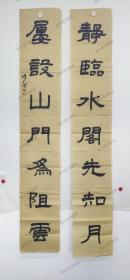 靜臨水閣先知月
屢設山門為阻雲